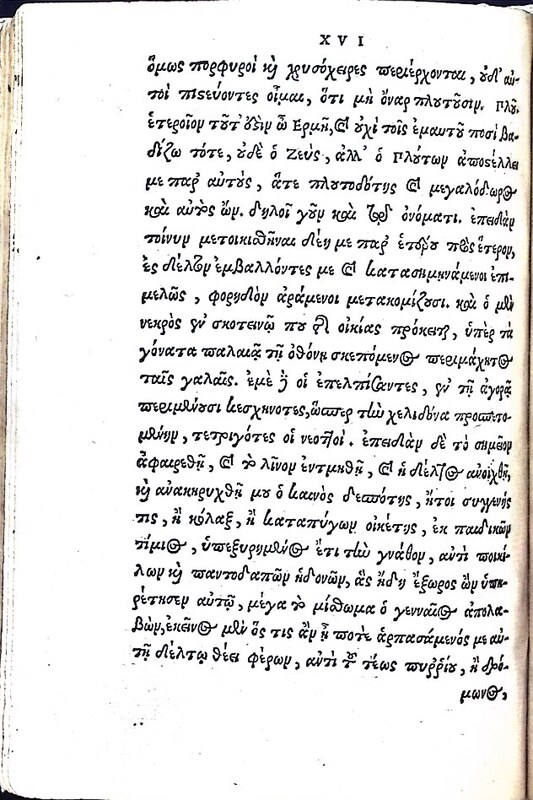 XVI
ὅμως πορφυροῖ καὶ χρυσόχειρες περιέρχονται, οὐδ' αὐ-
τοὶ πιστεύοντες οἶμαι, ὅτι μὴ ὄναρ πλουτοῦσιν. Πλοῦ.
ἑτεροῖον τοῦτ' ὦ Ἑρμῆ, καὶ οὐχὶ τοῖς ἐμαυτοῦ ποσὶ βα-
δίζω τότε, οὐδὲ ὁ Ζεύς, ἀλλ' ὁ Πλούτων ἀποστέλλει
με παρ' αὐτούς, ἅτε πλουτοδότης καὶ μεγαλόδωρος
καὶ αὐτὸς ὤν. δηλοῖ γοῦν καὶ τῷ ὀνόματι. ἐπειδὰν
τοίνυν μετοικισθῆναι δέῃ με παρ' ἑτέρου πρὸς ἕτερον,
ἐς δέλτον ἐμβαλλόντες με καὶ κατασημηνάμενοι ἐπι-
μελῶς, φορηδὸν ἀράμενοι μετακομίζουσι. καὶ ὁ μὲν
νεκρὸς ἐν σκοτεινῷ που τῆς οἰκίας πρόκειται, ὑπὲρ τὰ
γόνατα παλαιᾷ τῇ ὀθόνῃ σκεπόμενος περιμάχητος
ταῖς γαλαῖς. ἐμὲ δὲ οἱ ἐπελπίσαντες, ἐν τῇ ἀγορᾷ
περιμένουσι κεχηνότες, ὥσπερ τὴν χελιδόνα προσπετο-
μένην, τετριγότες οἱ νεοττοί. ἐπειδὰν δὲ τὸ σημεῖον
ἀφαιρεθῇ, καὶ τὸ λῖνον ἐντμηθῇ, καὶ ἡ δέλτος ἀνοιχθῇ,
καὶ ἀνακηρυχθῇ μου ὁ καινὸς δεσπότης, ἤτοι συγγενής
τις, ἢ κόλαξ, ἢ καταπύγων οἰκέτης, ἐκ παιδικῶν
τίμιος, ὑπεξυρημένος ἔτι τὴν γνάθον, ἀντὶ ποικί-
λων καὶ παντοδαπῶν ἡδονῶν, ἃς ἤδη ἔξωρος ὢν ὑπη-
ρέτησεν αὐτῷ, μέγα τὸ μίσθωμα ὁ γενναῖος ἀπολα-
βὼν, ἐκεῖνος μὲν ὅς τις ἂν ᾖ ποτε ἁρπασάμενός με αὐ-
τῇ δέλτῳ θέει φέρων, ἀντὶ τοῦ τέως πυρρίου, ἢ δρό-
μωνος,